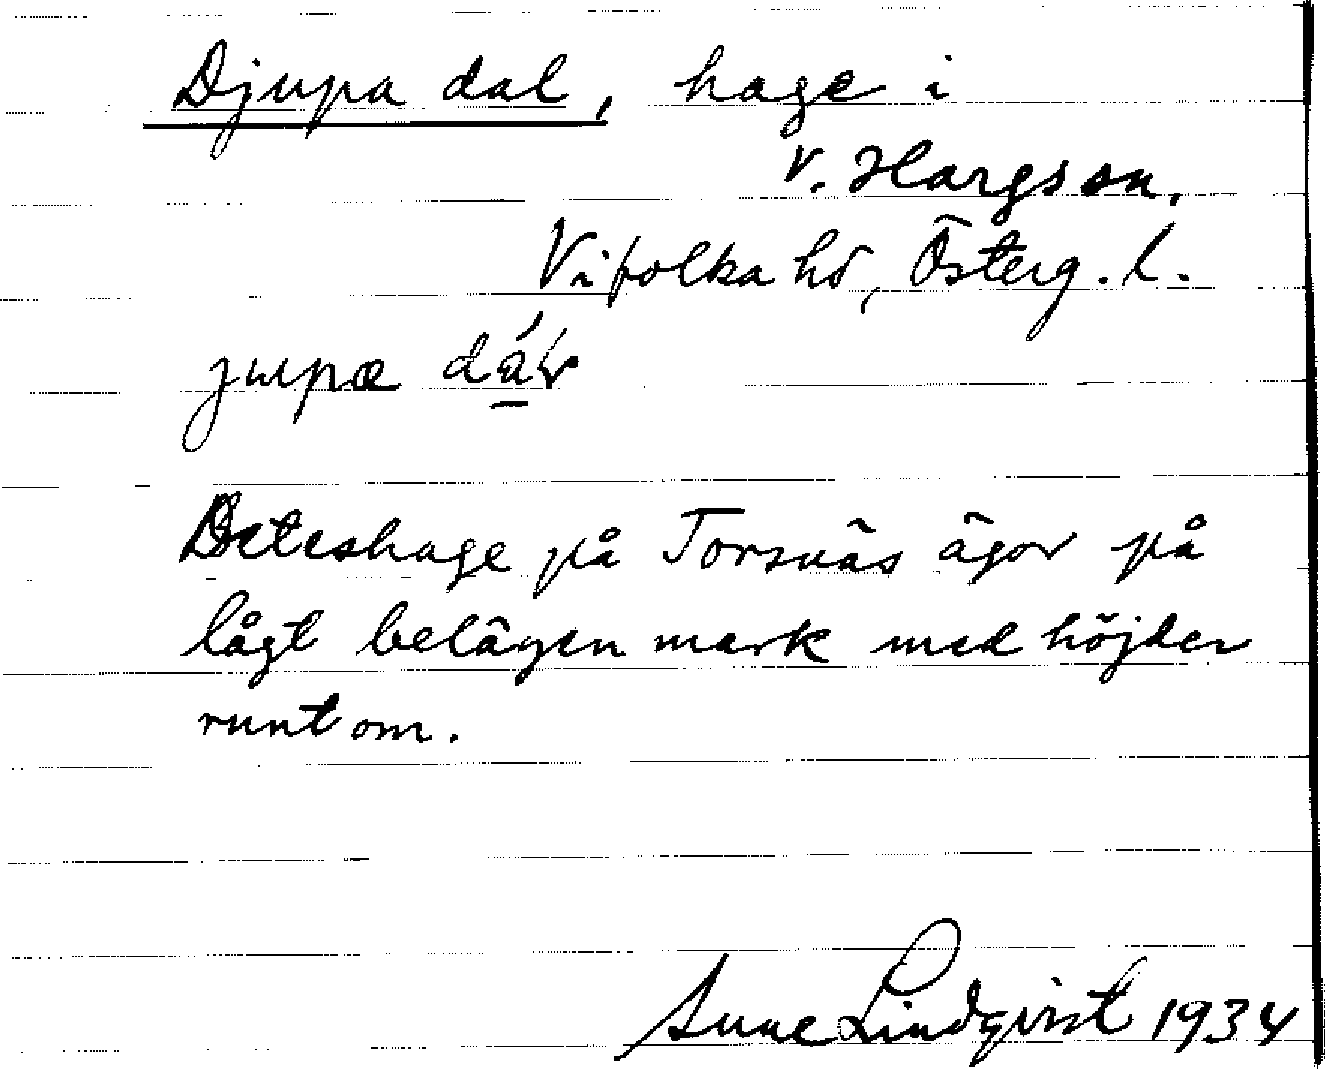 Djupa dal, hage i
V. Hargs sn.
Vifolka hd, Österg. l.
jupa dáv
Beteshage på Torsnäs ägor på
lågt belägen mark med höjder
runt om.
Sune Lindqvist 1934